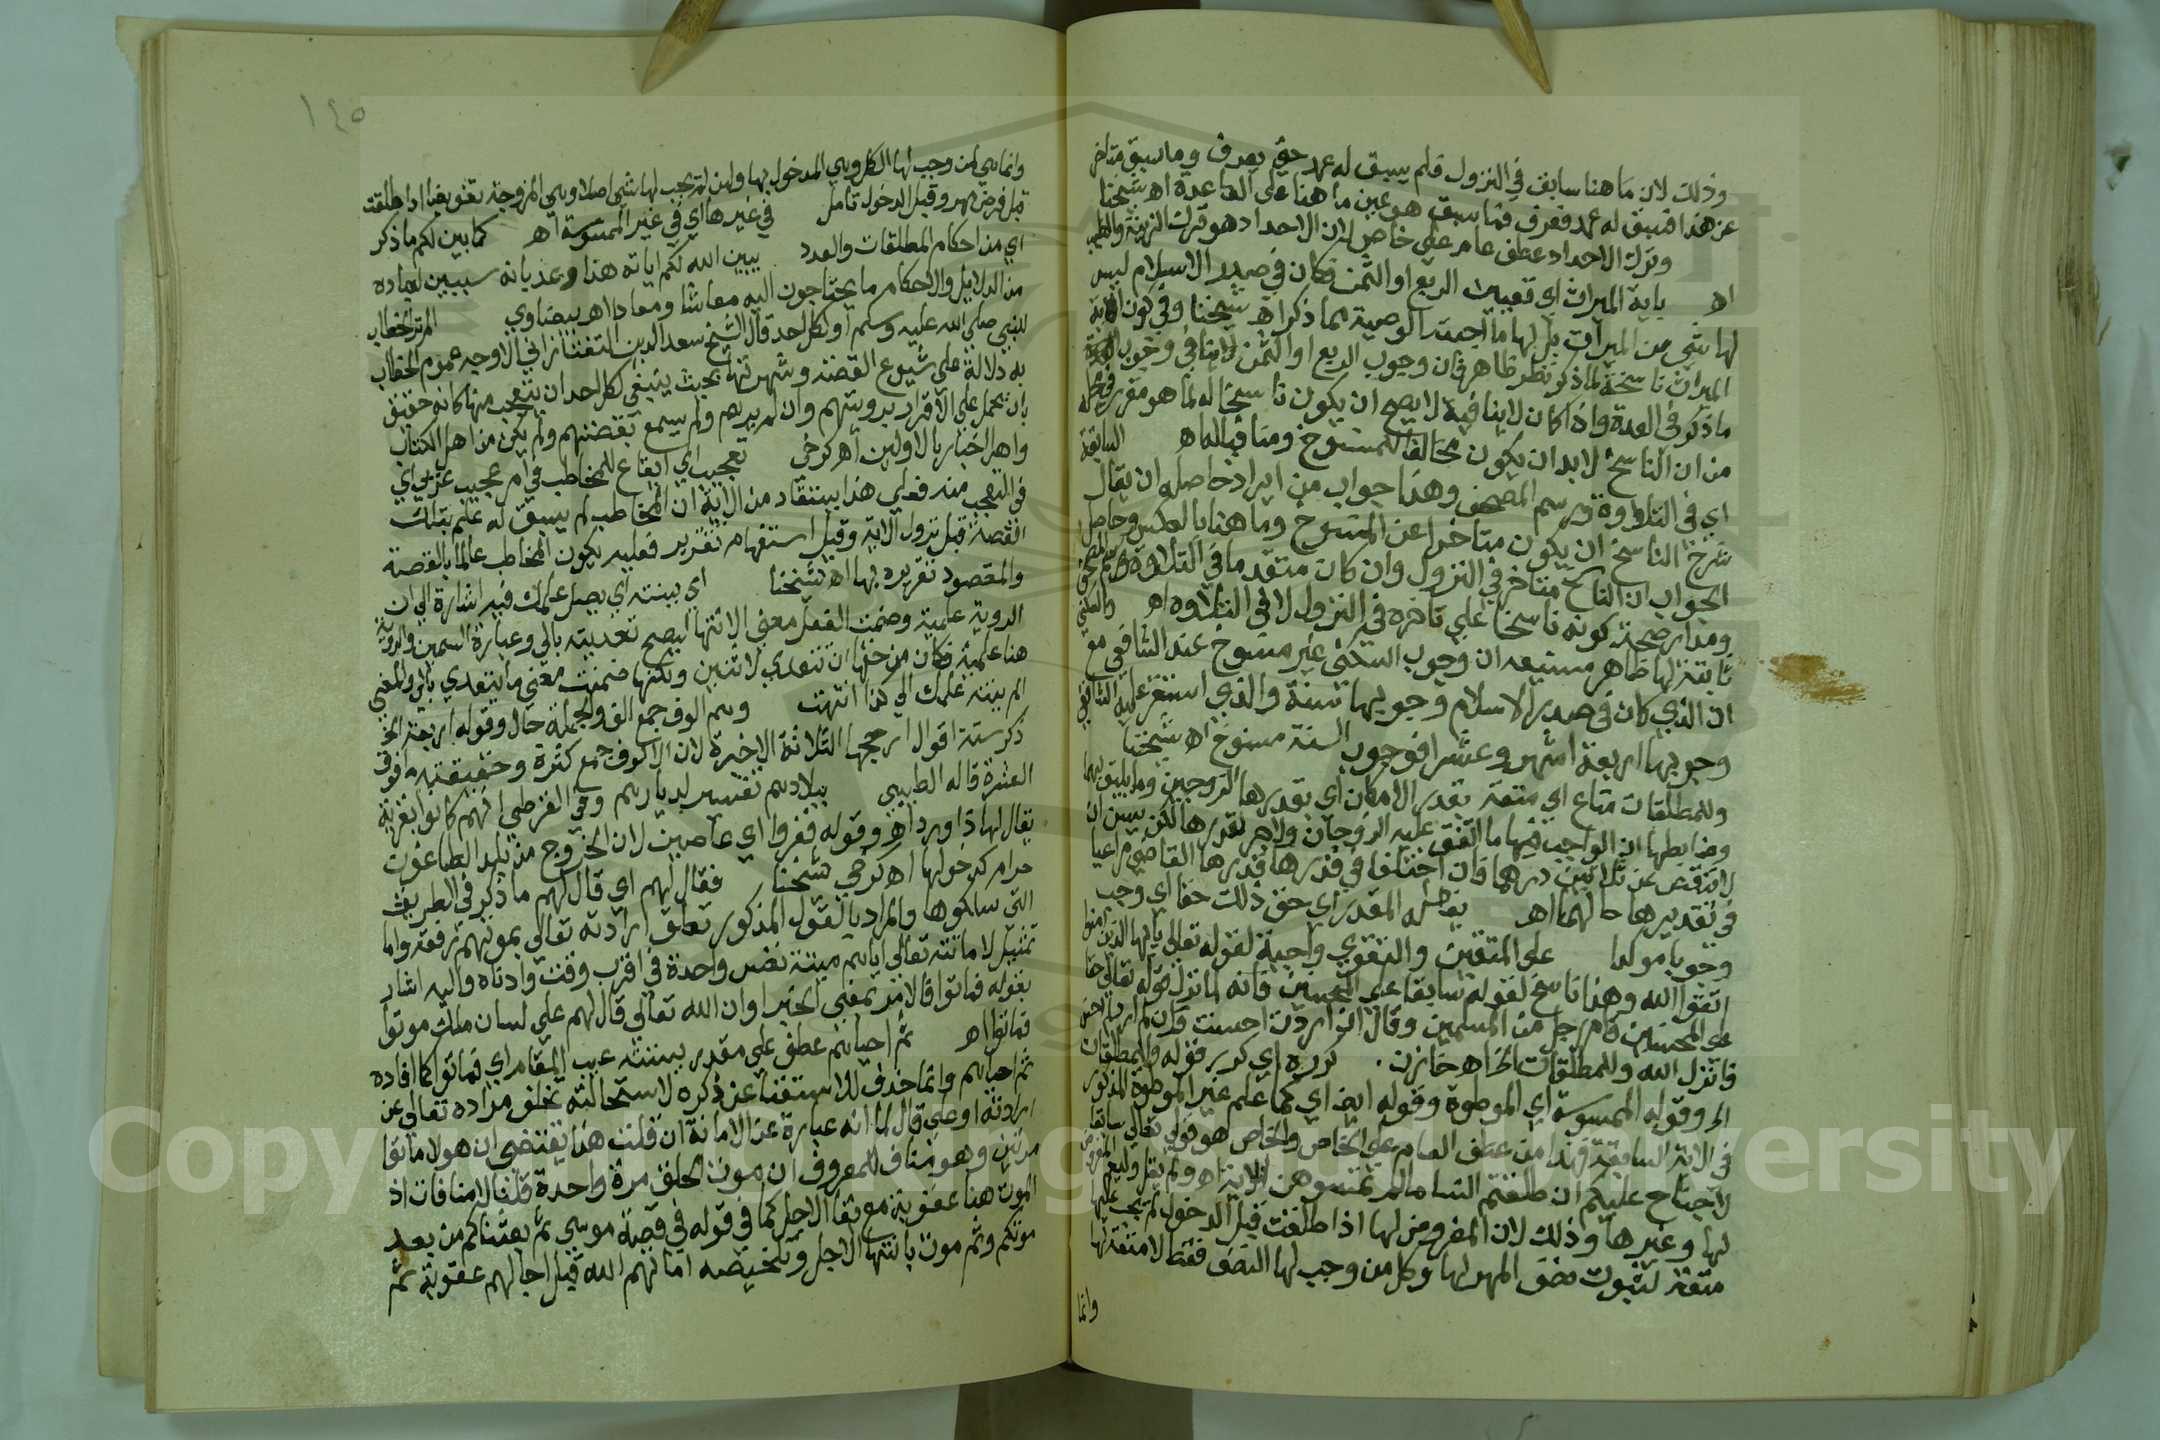 وذلك لان ما هنا سابق في النزول فلم يسبق له عهد حتى يعرف وما سبق متاخر
عن هذا فسبق له عهد فعرف فما سبق هو عين ما هنا على القاعدة اه شيخنا
وترك الاحداد عطف عام على خاص لان الاحداد هو ترك الزينة والطيب
اه باية الميراث اي تعيين الربع او الثمن فكان في صدر الاسلام ليس
لها شي من الميراث بل لها ما اجمت الوصية مما ذكر اه شيخنا وفي كون اية
الميراث ناسخة لما ذكر نظر ظاهر فان وجوب الربع او الثمن لا ينافي وجوب
ما ذكر في العدة واذا كان لا ينافيه لا يصح ان يكون ناسخا له لما هو مقرر في محله
من ان الناسخ لا بد ان يكون مخالفا للمنسوخ ومنافيا له اه السابقة
اي في التلاوة ورسم المصحف وهذا جواب من ايراد حاصله ان يقال
شرط الناسخ ان يكون متاخرا عن المنسوخ وما هنا بالعكس وحاصل
الجواب ان الناسخ متاخر في النزول وان كان متقدما في التلاوة ورسم المصحف
ومدار صحة كونه ناسخا على تاخره في النزول لا في التلاوة اه والسكنى
ثابتة لها ظاهر صنيعه ان وجوب السكنى غير منسوخ عند الشافعي مع
ان الذي كان في صدر الاسلام وجوبها سنة والذي استقر عليه الشافعي
وجوبها اربعة اشهر وعشرا فوجوب السنة منسوخ اه شيخنا
وللمطلقات متاع اي متعة بقدر الامكان اي بقدرها الزوجين وما يليق بهما
وضابطها ان الواجب فيها ما اتفق عليه الزوجان ولا حد لقدرها لكن يسن ان
لا تنقص عن ثلاثين درهما فان اختلفا في قدرها قدرها القاضي مراعيا
في تقديرها حالهما اه بفعله المقدر اي حق ذلك حقا اي وجب
وجوبا موكدا على المتقين والتقوى واجبة لقوله تعالى يا ايها الذين امنوا
اتقوا الله وهذا ناسخ لقوله سابقا على المحسنين فانه لما نزل قوله تعالى حقا
على المحسنين قام رجل من المسلمين وقال ان اردت احسنت فان لم ارد لم احسن
فانزل الله وللمطلقات الخ اه خازن . كرره اي كرر قوله وللمطلقات
الخ وقوله الممسوسة اي الموطوة وقوله ايضا اي كما علم غير الموطوة المذكور
في الاية السابقة فهذا من عطف العام على الخاص والخاص هو قوله تعالى سابقا
لا جناح عليكم ان طلقتم النسا ما لم تمسوهن الاية اه ولم يقل وليعم المفروض
لها وغيرها وذلك لان المفروض لها اذا طلقت قبل الدخول لم يجب لها
متعة لثبوت نصف المهر لها وكل من وجب لها النصف فقط لا متعة لها
وانما
١٤٥
وانما هي لمن وجب لها الكل وهي المدخول بها ولمن لم يجب لها شي اصلا وهي المزوجة تفويضا اذا طلقت
قبل فرض مهر وقبل الدخول تامل في غيرها اي في غير الممسوسة اه كما بين لكم ما ذكر
اي من احكام المطلقات والعدد يبين الله لكم اياته هذا وعد بانه سيبين لعباده
من الدلايل والاحكام ما يحتاجون اليه معاشا ومعادا اه بيضاوي الم تر الخطاب
للنبي صلى الله عليه وسلم او لكل احد قال الشيخ سعد الدين التفتازاني الاوجه عموم الخطاب
به دلالة على شيوع القصة وشهرتها بحيث ينبغي لكل احد ان يتعجب منها كانه حقيق
بان يحمل على الاقرار برويتهم وان لم يرهم ولم يسمع بقصتهم ولم يكن من اهل الكتاب
واهل اخبار بالاولين اه كرخي تعجيب اي ايقاع للمخاطب في امر عجيب غريب اي
في التعجب منه فعلى هذا يستفاد من الاية ان المخاطب لم يسبق له علم بتلك
القصة قبل نزول الاية وقيل استفهام تقرير فعليه يكون المخاطب عالما بالقصة
والمقصود تقريره بها اه شيخنا اي ينته اي يصل علمك فيه اشارة الى ان
الروية علمية وضمنت الفعل معنى الانتها ليصح تعديته بالى وعبارة السمين والروية
هنا علمية فكان من حقها ان تتعدى لاثنين ولكنها ضمنت معنى ما يتعدى بالى والمعنى
الم ينته علمك الى كذا انتهت وهم الوف جمع الف والجملة حال وقوله اربعة الخ
ذكر ستة اقوال ارجحها الثلاثة الاخيرة لان الالوف جمع كثرة وحقيقته ما فوق
العشرة قاله الطيبي ببلادهم تفسير لديارهم وفي القرطبي انهم كانوا بقرية
يقال لها داوردا اه وقوله ففروا اي عاصين لان الخروج من بلد الطاعون
حرام كدخولها اه كرخي شيخنا فقال لهم اي قال لهم ما ذكر في الطريق
التي سلكوها والمراد بالقول المذكور تعلق ارادته تعالى بموتهم دفعة واما
تمثيل لاماتته تعالى اياهم ميتة نفس واحدة في اقرب وقت وادناه واليه اشار
بقوله فماتوا فالامر بمعنى الخبر او ان الله تعالى قال لهم على لسان ملك موتوا
فماتوا اه ثم احياهم عطف على مقدر يستدعيه المقام اي فماتوا كما افاده
ثم احياهم وانما حذف للاستغنا عن ذكره لاستحالة تخلف مراده تعالى عن
ارادته او على قال لما انه عبارة عن الاماتة ان قلت هذا يقتضي ان هولا ماتوا
مرتين وهو مناف للمعروف ان موت الخلق مرة واحدة قلنا لا منافاة اذ
الموت هنا عقوبة مع بقا الاجل كما في قوله في قصة موسى ثم بعثناكم من بعد
موتكم وثم موت بانتها الاجل وتلخيصه اماتهم الله قبل اجالهم عقوبة ثم
Copy University